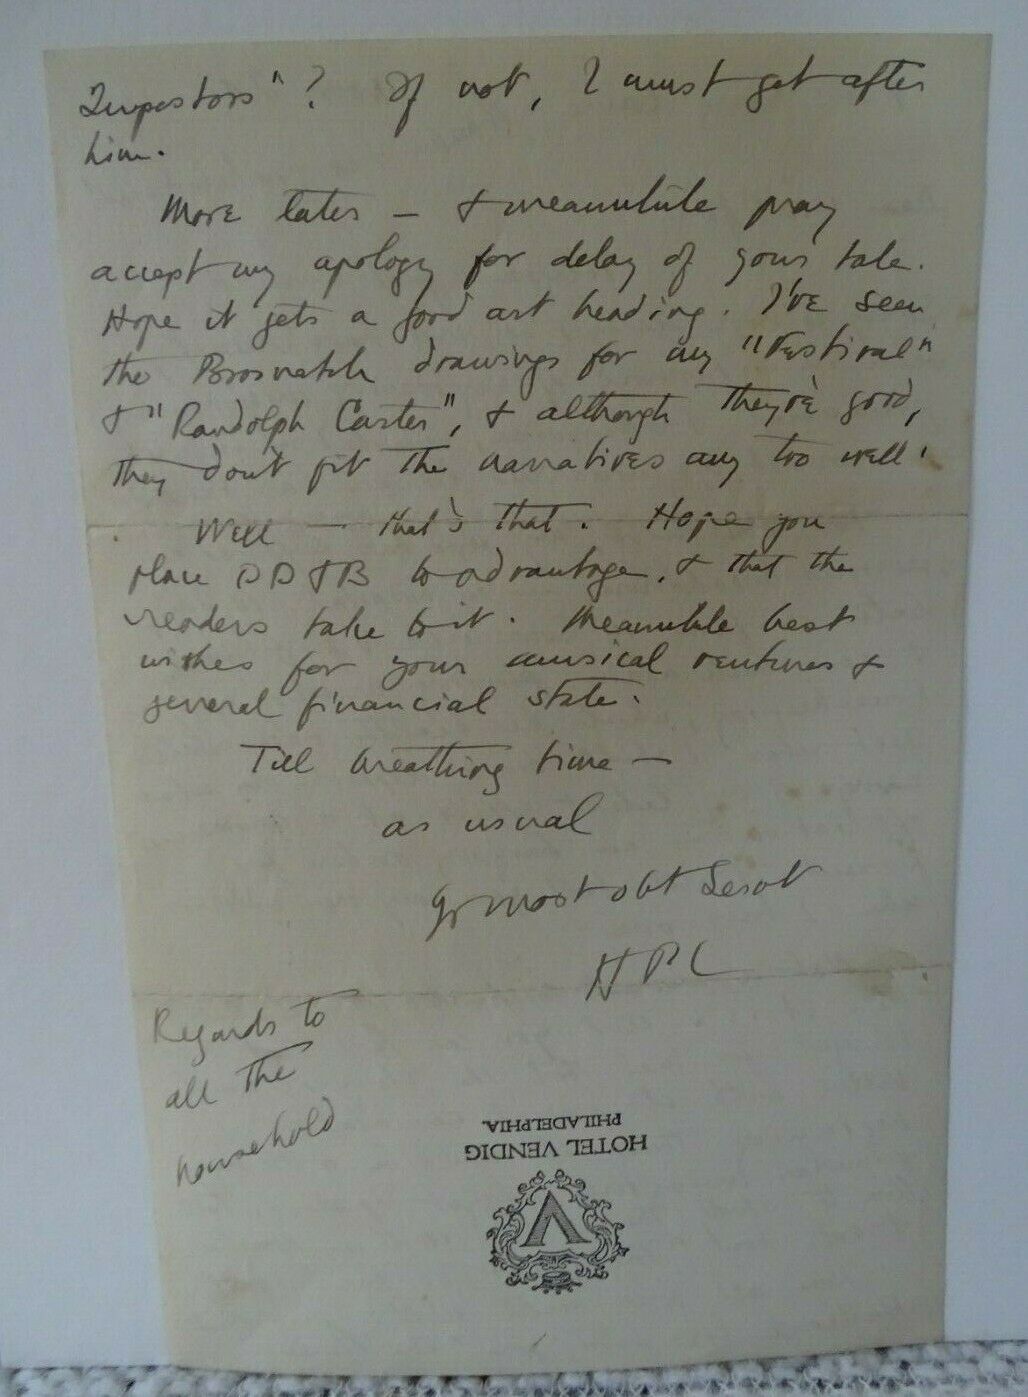 Impostors"? If not, I must get after
him.
More later — & meanwhile pray
accept my apology for delay of your tale.
Hope it gets a good art heading. I've seen
the Brosnatch drawings for my "Festival"
& "Randolph Carter", & although they're good,
they don't fit the narratives any too well!
Well — that's that. Hope you
place DD&B to advantage, & that the
readers take to it. Meanwhile best
wishes for your musical ventures &
general financial state.
Till breathing time —
as usual
Yr most obt Servt
HPL
Regards to
all the
household
HOTEL VENDIG
PHILADELPHIA.
V